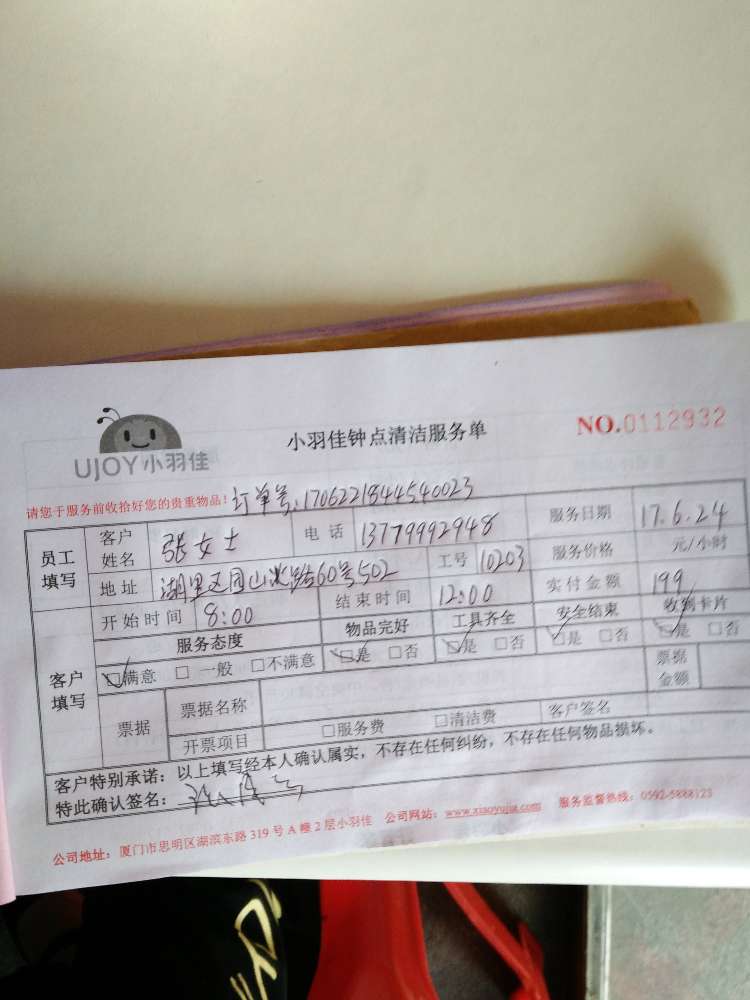 UJOY小羽佳
小羽佳钟点清洁服务单
NO.0112932
请您于服务前收拾好您的贵重物品! 订单号:1706221844540023
员工填写 客户姓名 张女士 电话 13779992948 服务日期 17.6.24
地址 湖里区园山北路60号502 工号 10203 服务价格 元/小时
开始时间 8:00 结束时间 12:00 实付金额 199
客户填写 服务态度 物品完好 工具齐全 安全结束 收到卡片
☑满意 □一般 □不满意 ☑是 □否 ☑是 □否 ☑是 □否 ☑是 □否
票据 票据名称 票据金额
开票项目 □服务费 □清洁费 客户签名
客户特别承诺:以上填写经本人确认属实,不存在任何纠纷,不存在任何物品损坏。
特此确认签名:
公司地址:厦门市思明区湖滨东路319号A幢2层小羽佳 公司网站:www.xiaoyujia.com 服务监督热线:0592-5888123